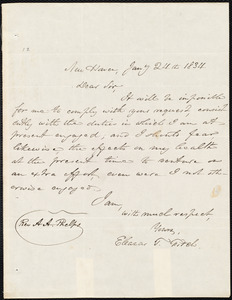 New Haven, Jany 24th 1834.
Dear Sir,
It will be impossible
for me to comply with your request, consist-
ently with the duties in which I am at
present engaged, and I should fear
likewise the effects on my health
at the present time to venture on
an extra effort, even were I not oth-
erwise engaged.
I am,
with much respect,
Yours,
Eleazar T. Fitch.
Rev. A. A. Phelps